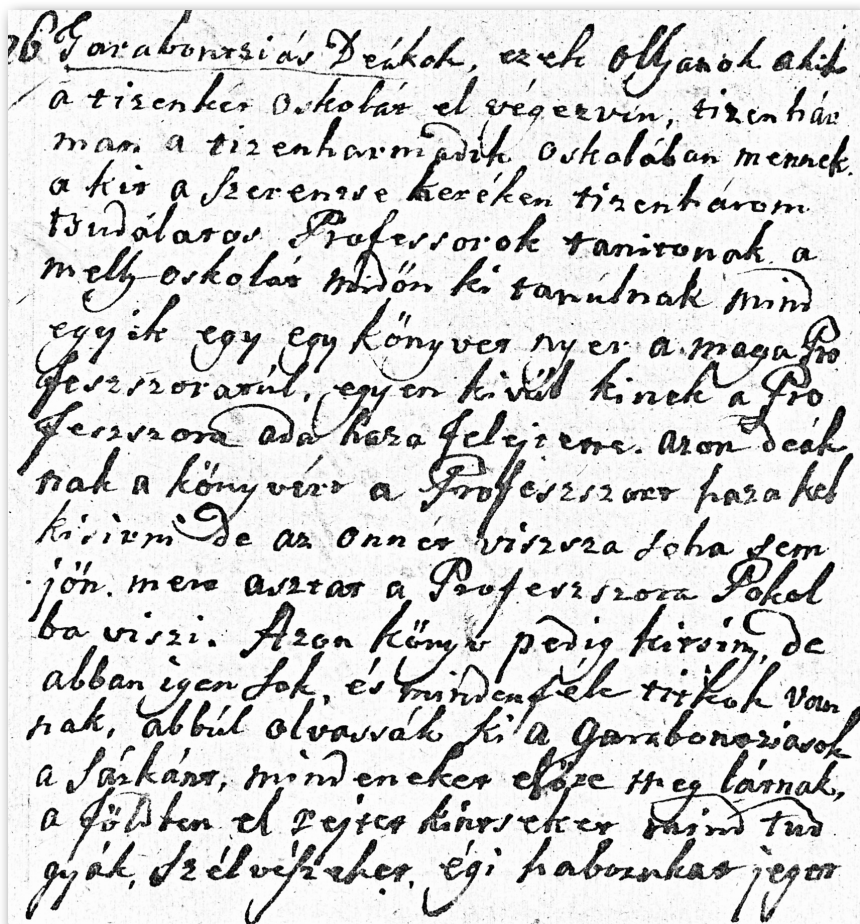 26 Garabontziás Deákok, ezek ollyanok akik
a tizenkét oskolát el végezvén, tizenhár
man a tizenharmadik oskolában mennek.
a kit a szerentse keréken tizenhárom
tsudálatos Professorok tanitonak a
melly oskolát midőn ki tanúlnak mind
egyik egy egy könyvet nyer a maga Pro
feszszorátúl, egyen kivűl kinek a Pro
feszszora oda haza felejtette. azon deák
nak a könyvért a Profeszszort haza kel
kisirni de az onnét viszsza soha sem
jön. mert asztat a Profeszszora Pokol
ba viszi. Azon könyv pedig kitsiny, de
abban igen sok, és mindenféle titkok van
nak, abbúl olvassák ki a Garabontziások
a Sárkánt, mindeneket előre meg látnak,
a földben el rejtet kintseket mind tud
gyák, szélvészeket, égi habornkat jeget